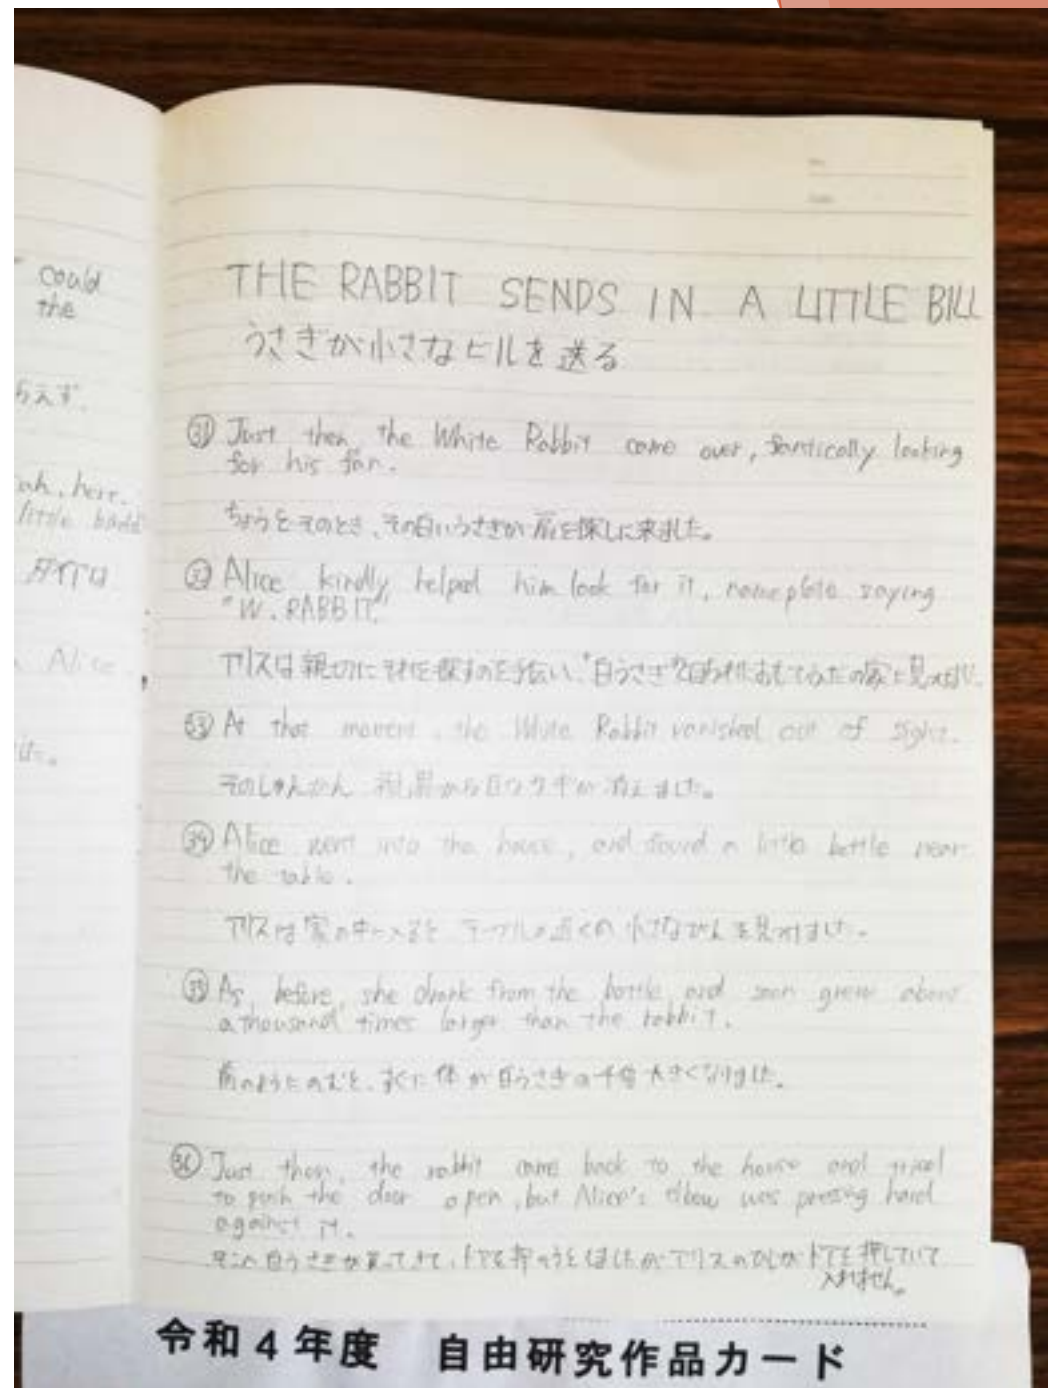 could
the
らえず.
ah, here.
little
ダイナは
Alice
THE RABBIT SENDS IN A LITTLE BILL
うさぎが小さなビルを送る
㉛ Just then, the White Rabbit came over, frantically looking
for his fan.
ちょうどそのとき、その白いうさぎが扇を探しに来ました。
㉜ Alice kindly helped him look for it, nameplate saying
"W. RABBIT"
アリスは親切にそれを探すのを手伝い、"白うさぎ"
㉝ At that moment, the White Rabbit vanished out of sight.
そのしゅんかん 視界から白ウサギが消えました。
㉞ Alice went into the house, and found a little bottle near
the table.
アリスは家の中へ入ると テーブルの近くの小さなびんを見つけました。
㉟ As before, she drank from the bottle, and soon grew about
a thousand times larger than the rabbit.
前のようにのむと、すぐに体が白うさぎの千倍大きくなりました。
㊱ Just then, the rabbit came back to the house and tried
to push the door open, but Alice's elbow was pressing hard
against it.
白うさぎが戻ってきて、ドアを押そうとしましたがアリスのひじがドアを押していて
入れません。
令和4年度 自由研究作品カード